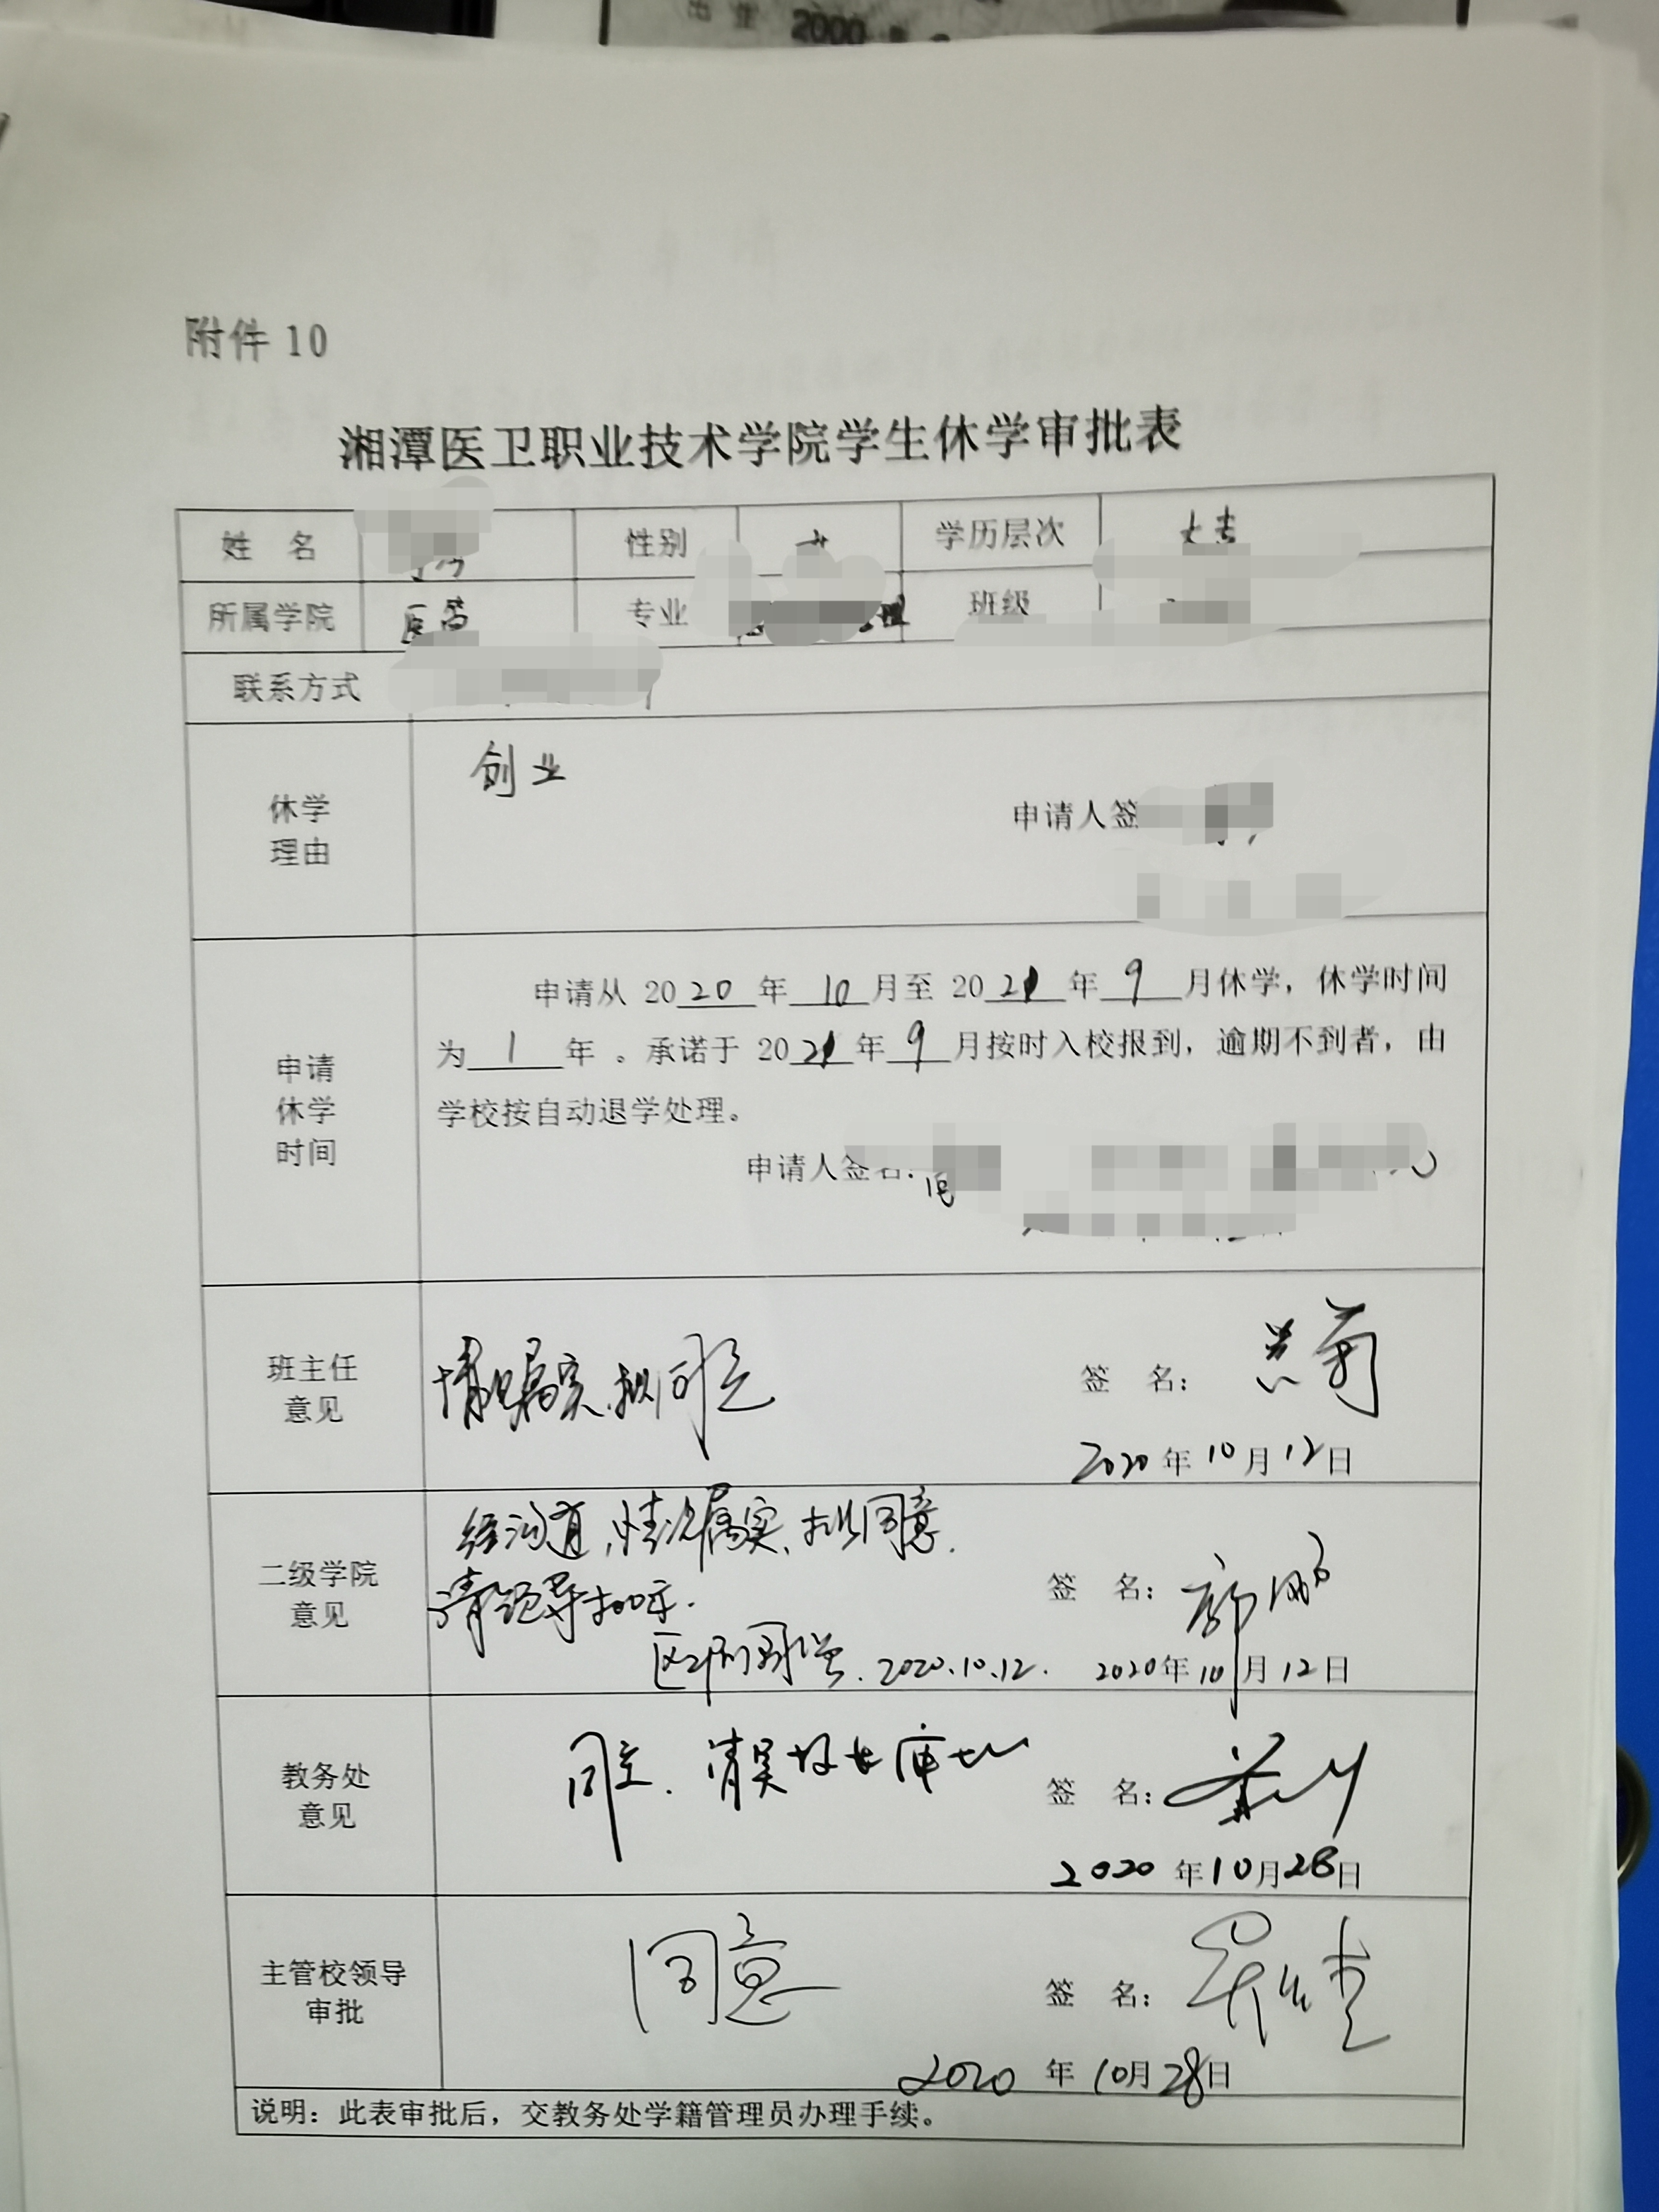 出生 2000 年
附件 10
湘潭医卫职业技术学院学生休学审批表
姓 名 性别 学历层次 大专
所属学院 医药 专业 理 班级
联系方式
休学理由 创业
申请人签
申请休学时间 申请从 2020 年 10 月至 2021 年 9 月休学，休学时间
为 1 年 。承诺于 2021 年 9 月按时入校报到，逾期不到者，由
学校按自动退学处理。
申请人签名：
班主任意见 情况属实，拟同意 签 名：
2020 年 10 月 12 日
二级学院意见 经沟通，情况属实，拟同意.
请领导批示. 签 名：
2020.10.12. 2020 年 10 月 12 日
教务处意见 同意. 请吴校长审批 签 名：
2020 年 10 月 28 日
主管校领导审批 同意 签 名：
2020 年 10 月 28 日
说明：此表审批后，交教务处学籍管理员办理手续。